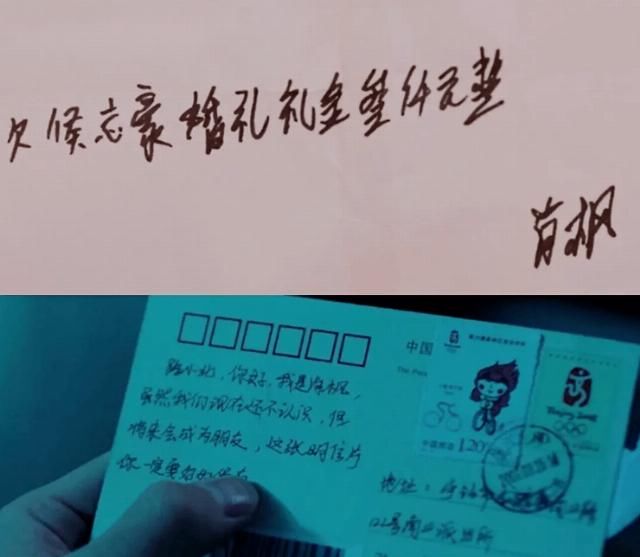 欠侯志豪婚礼礼金叁仟元整
肖枫
中国
小北，你好，我是枫，
虽然我们现在还不认识，但
将来会成为朋友，这张明信片
你一定要好好保存
中国邮政 1.20
Beijing 2008
地址：
122号 派出所